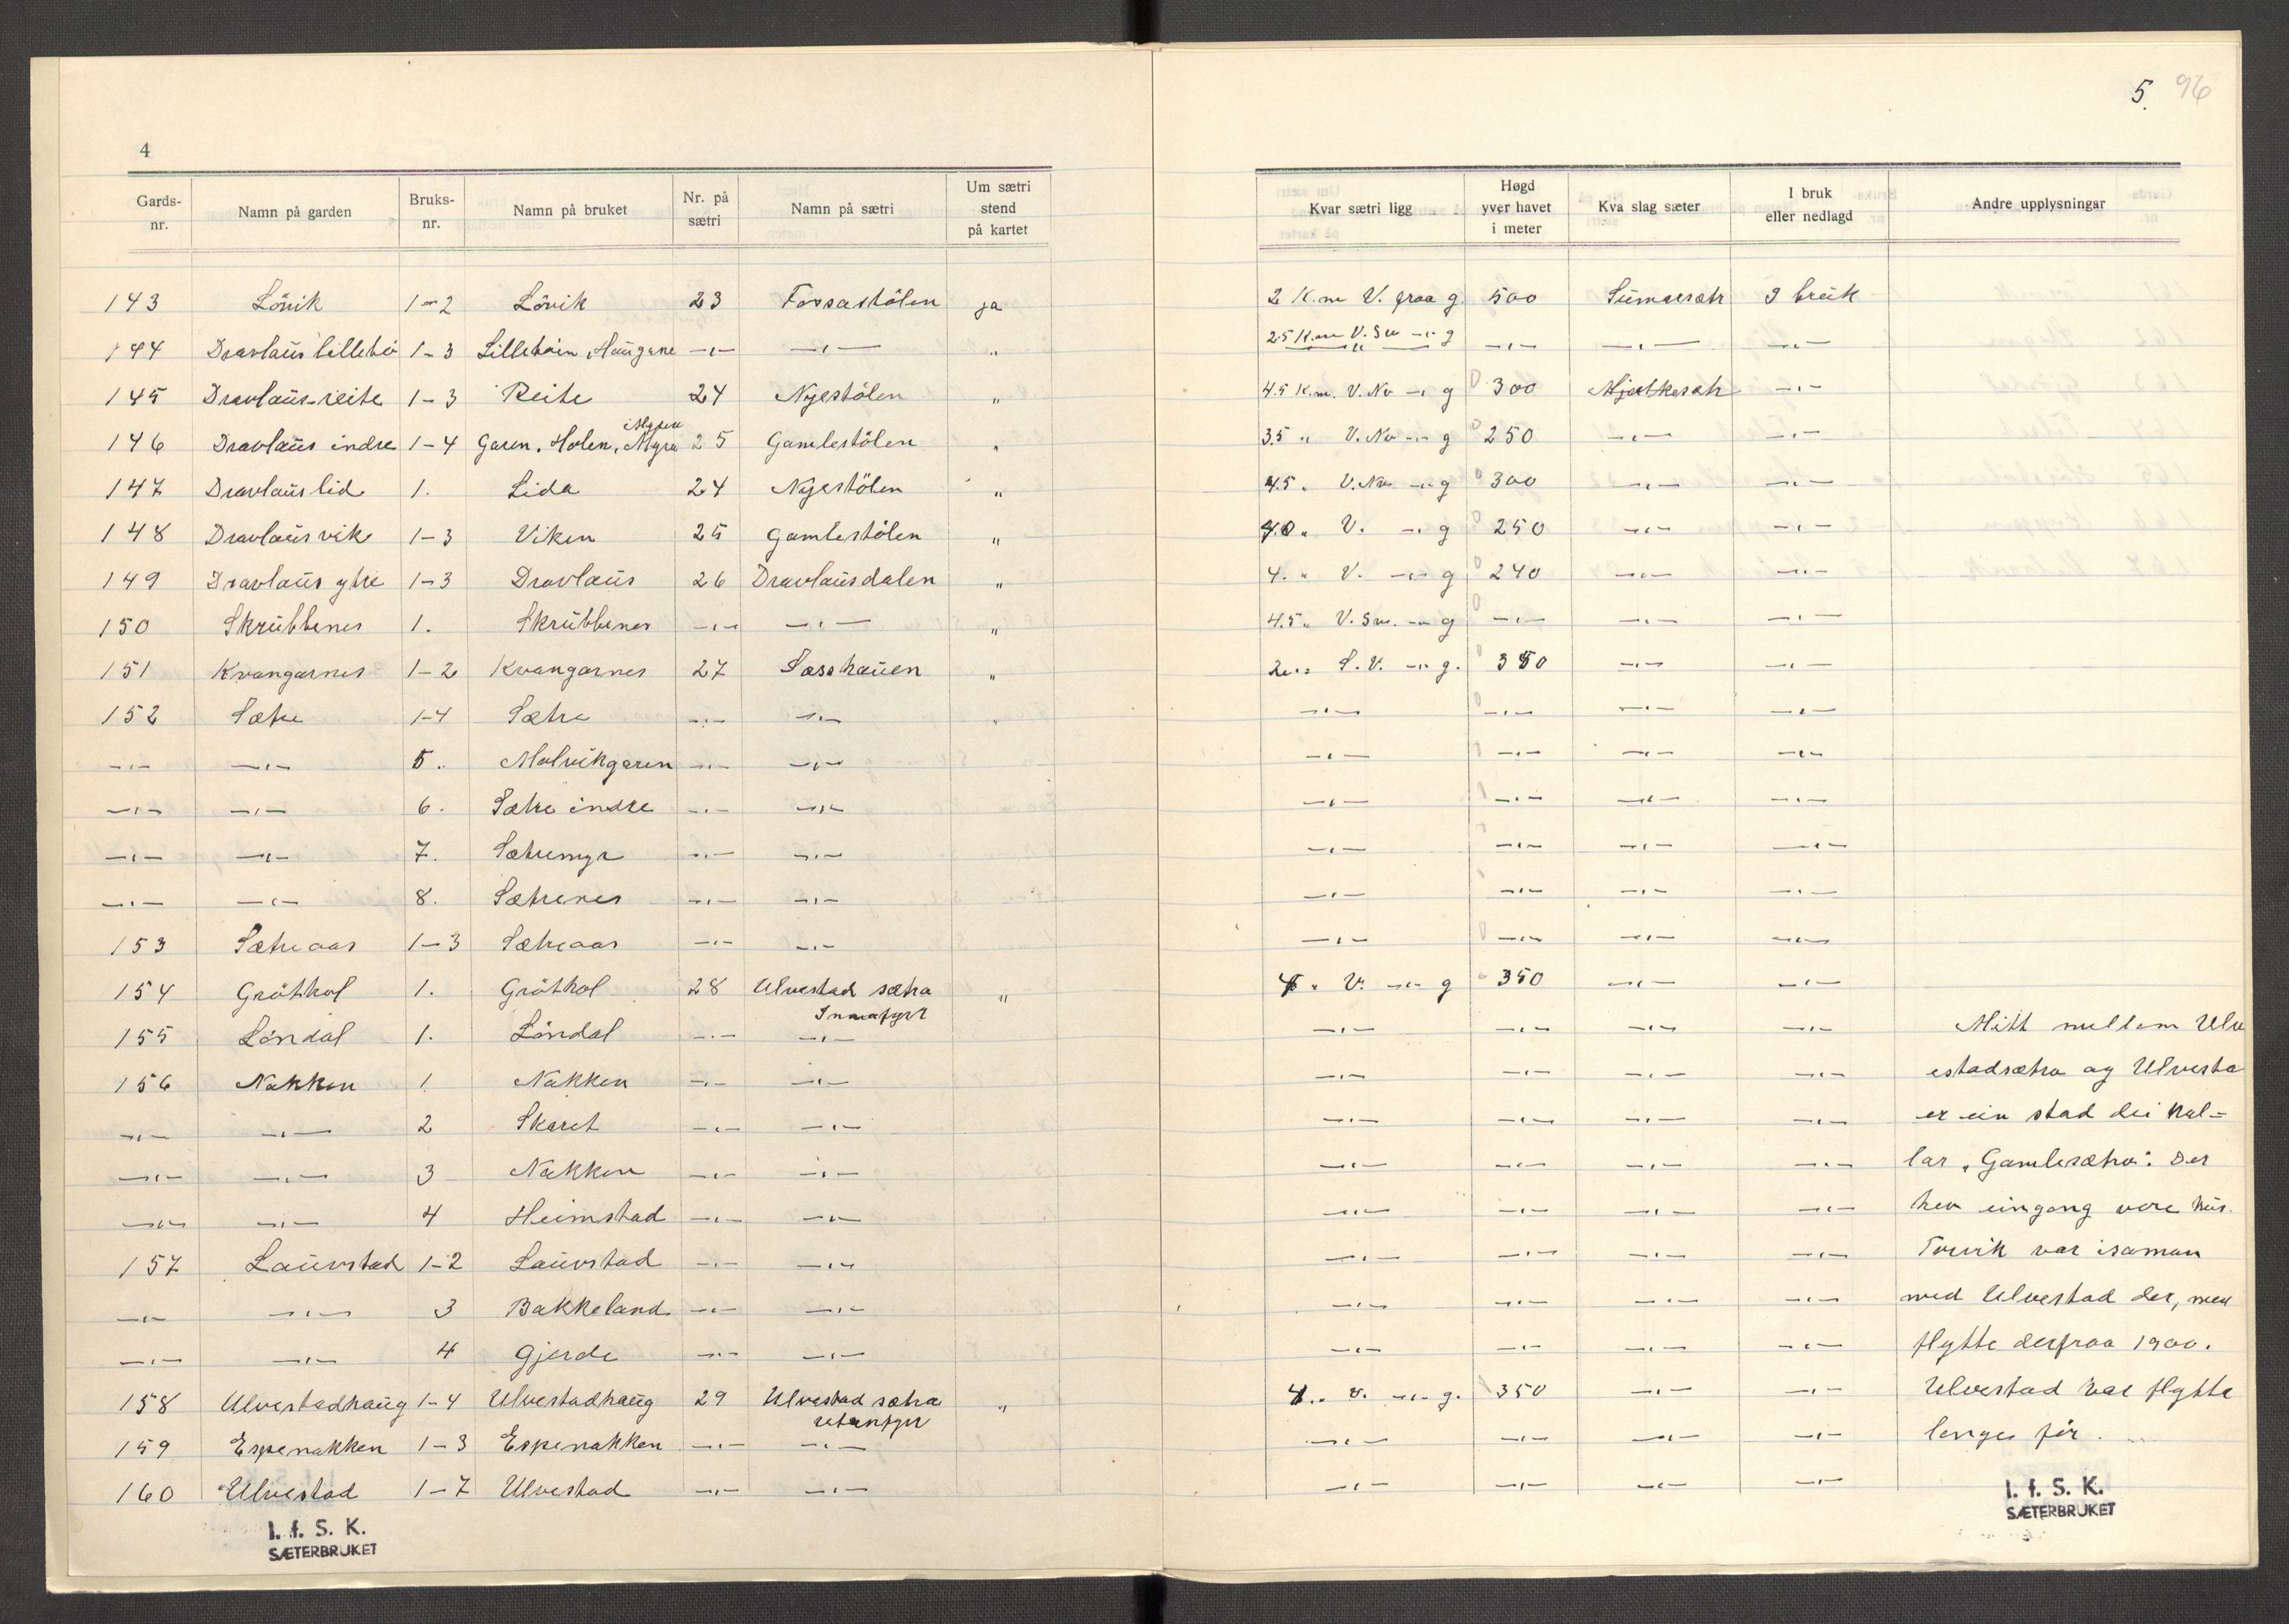 4
Gards-nr. Namn på garden Bruks-nr. Namn på bruket Nr. på sætri Namn på sætri Um sætri stend på kartet
143 Lövik 1-2 Lövik 23 Fossastölen ja
144 Dravlaus lillebö 1-3 Lilleböen, Haugane -"- -"- "
145 Dravlaus-reite 1-3 Reite 24 Nyestölen "
146 Dravlaus indre 1-4 Garen, Holen, Myra 25 Gamlestölen "
147 Dravlaus lid 1. Lida 24 Nyestölen "
148 Dravlaus vik 1-3 Viken 25 Gamlestölen "
149 Dravlaus ytre 1-3 Dravlaus 26 Dravlausdalen "
150 Skrubbenes 1. Skrubbenes -"- -"- "
151 Kvangarnes 1-2 Kvangarnes 27 Sasshauen "
152 Sætre 1-4 Sætre -"- -"- "
-"- -"- 5. Molvikgaren -"- -"-
-"- -"- 6. Sætre indre -"- -"-
-"- -"- 7. Sætremyr -"- -"-
-"- -"- 8. Sætrenes -"- -"-
153 Sætreaas 1-3 Sætreaas -"- -"-
154 Gröthol 1. Gröthol 28 Ulvestad sætra "
Innafyri
155 Löndal 1. Löndal -"- -"-
156 Nakken 1 Nakken -"- -"-
-"- -"- 2 Skaret -"- -"-
-"- -"- 3 Nakken -"- -"-
-"- -"- 4 Heimstad -"- -"-
157 Lauvstad 1-2 Lauvstad -"- -"-
-"- -"- 3 Bakkeland -"- -"-
-"- -"- 4 Gjerde -"- -"-
158 Ulvestadhaug 1-4 Ulvestadhaug 29 Ulvestad sætra "
utanfyri
159 Espenakken 1-3 Espenakken -"- -"-
160 Ulvestad 1-7 Ulvestad -"- -"-
I. f. S. K.
SÆTERBRUKET
5. 96
Kvar sætri ligg Høgd yver havet i meter Kva slag sæter I bruk eller nedlagd Andre upplysningar
2 K.m V. fraa g. 500 Sumarsætr I bruk
2.5 K.m V. Sv -"- g -"- -"- -"-
4.5 K.m. V. Nv -"- g 300 Mjølkesætr -"-
3.5 " V. Nv -"- g 250 -"- -"-
4.5 " V. Nv -"- g 300 -"- -"-
4.0 " V. -"- g 250 -"- -"-
4. " V. -"- g 240 -"- -"-
4.5 " V. Sv. -"- g -"- -"- -"-
2. " S.V. -"- g. 350 -"- -"-
-"- -"- -"- -"-
-"- -"- -"- -"-
-"- -"- -"- -"-
-"- -"- -"- -"-
-"- -"- -"- -"-
-"- -"- -"- -"-
4 " V. -"- g 350 -"- -"-
-"- -"- -"- -"- Mitt mellem Ulv
-"- -"- -"- -"- estadsætra og Ulvesta
-"- -"- -"- -"- er ein stad dei kal-
-"- -"- -"- -"- lar "Gamlesætra". Der
-"- -"- -"- -"- hev eingong vore hus.
-"- -"- -"- -"- Torvik var isaman
-"- -"- -"- -"- med Ulvestad der, men
-"- -"- -"- -"- flytte derfraa 1900.
4. " V. -"- g. 350 -"- -"- Ulvestad var flytte
-"- -"- -"- -"- lenger för.
-"- -"- -"- -"-
I. f. S. K.
SÆTERBRUKET